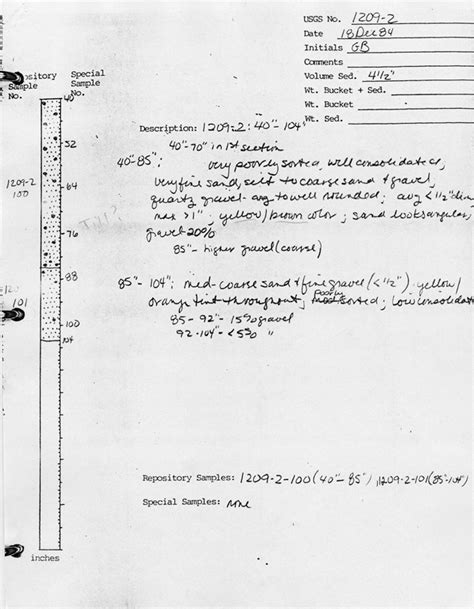 USGS No. 1209-2
Date 18 Dec 84
Initials GB
Comments
Volume Sed. 4½"
Wt. Bucket + Sed.
Wt. Bucket
Wt. Sed.
Repository Sample No.
Special Sample No.
40
52
1209-2
100
64
76
88
101
100
104
inches
Description: 1209-2: 40"-104"
40"-70" in 1st section
40-85": very poorly sorted, well consolidated,
very fine sand, silt to coarse sand & gravel,
quartz gravel - ang to well rounded; avg <½" dia,
max >1"; yellow/brown color; sand looks angular,
gravel 20%
85"- higher gravel (coarse)
85"-104": med-coarse sand & fine gravel (<½") yellow/
orange tint throughout; poorly sorted; low consolidat
85-92"- 15% gravel
92-104"- <5% "
Repository Samples: 1209-2-100 (40"-85"), 1209-2-101 (85"-104")
Special Samples: none